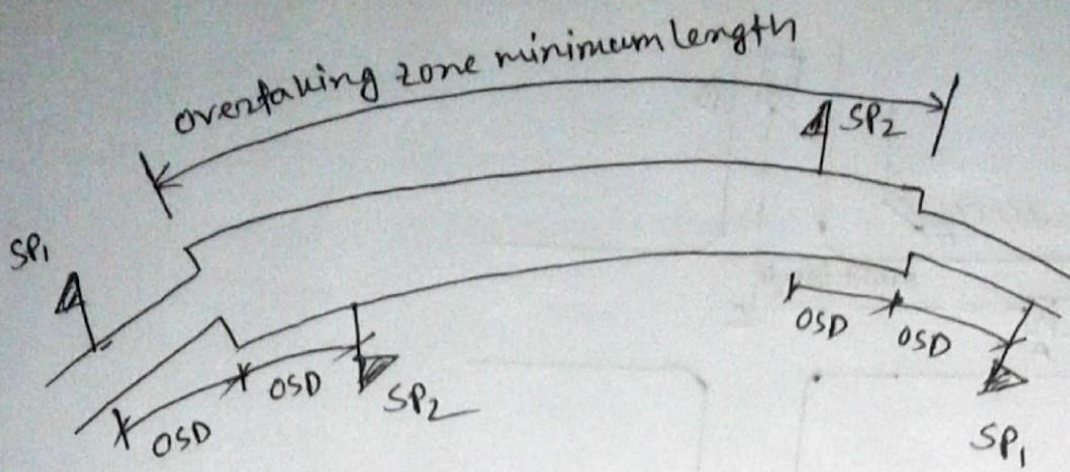 overtaking zone minimum length
SP2
SP1
OSD
OSD
OSD
OSD
SP2
SP1